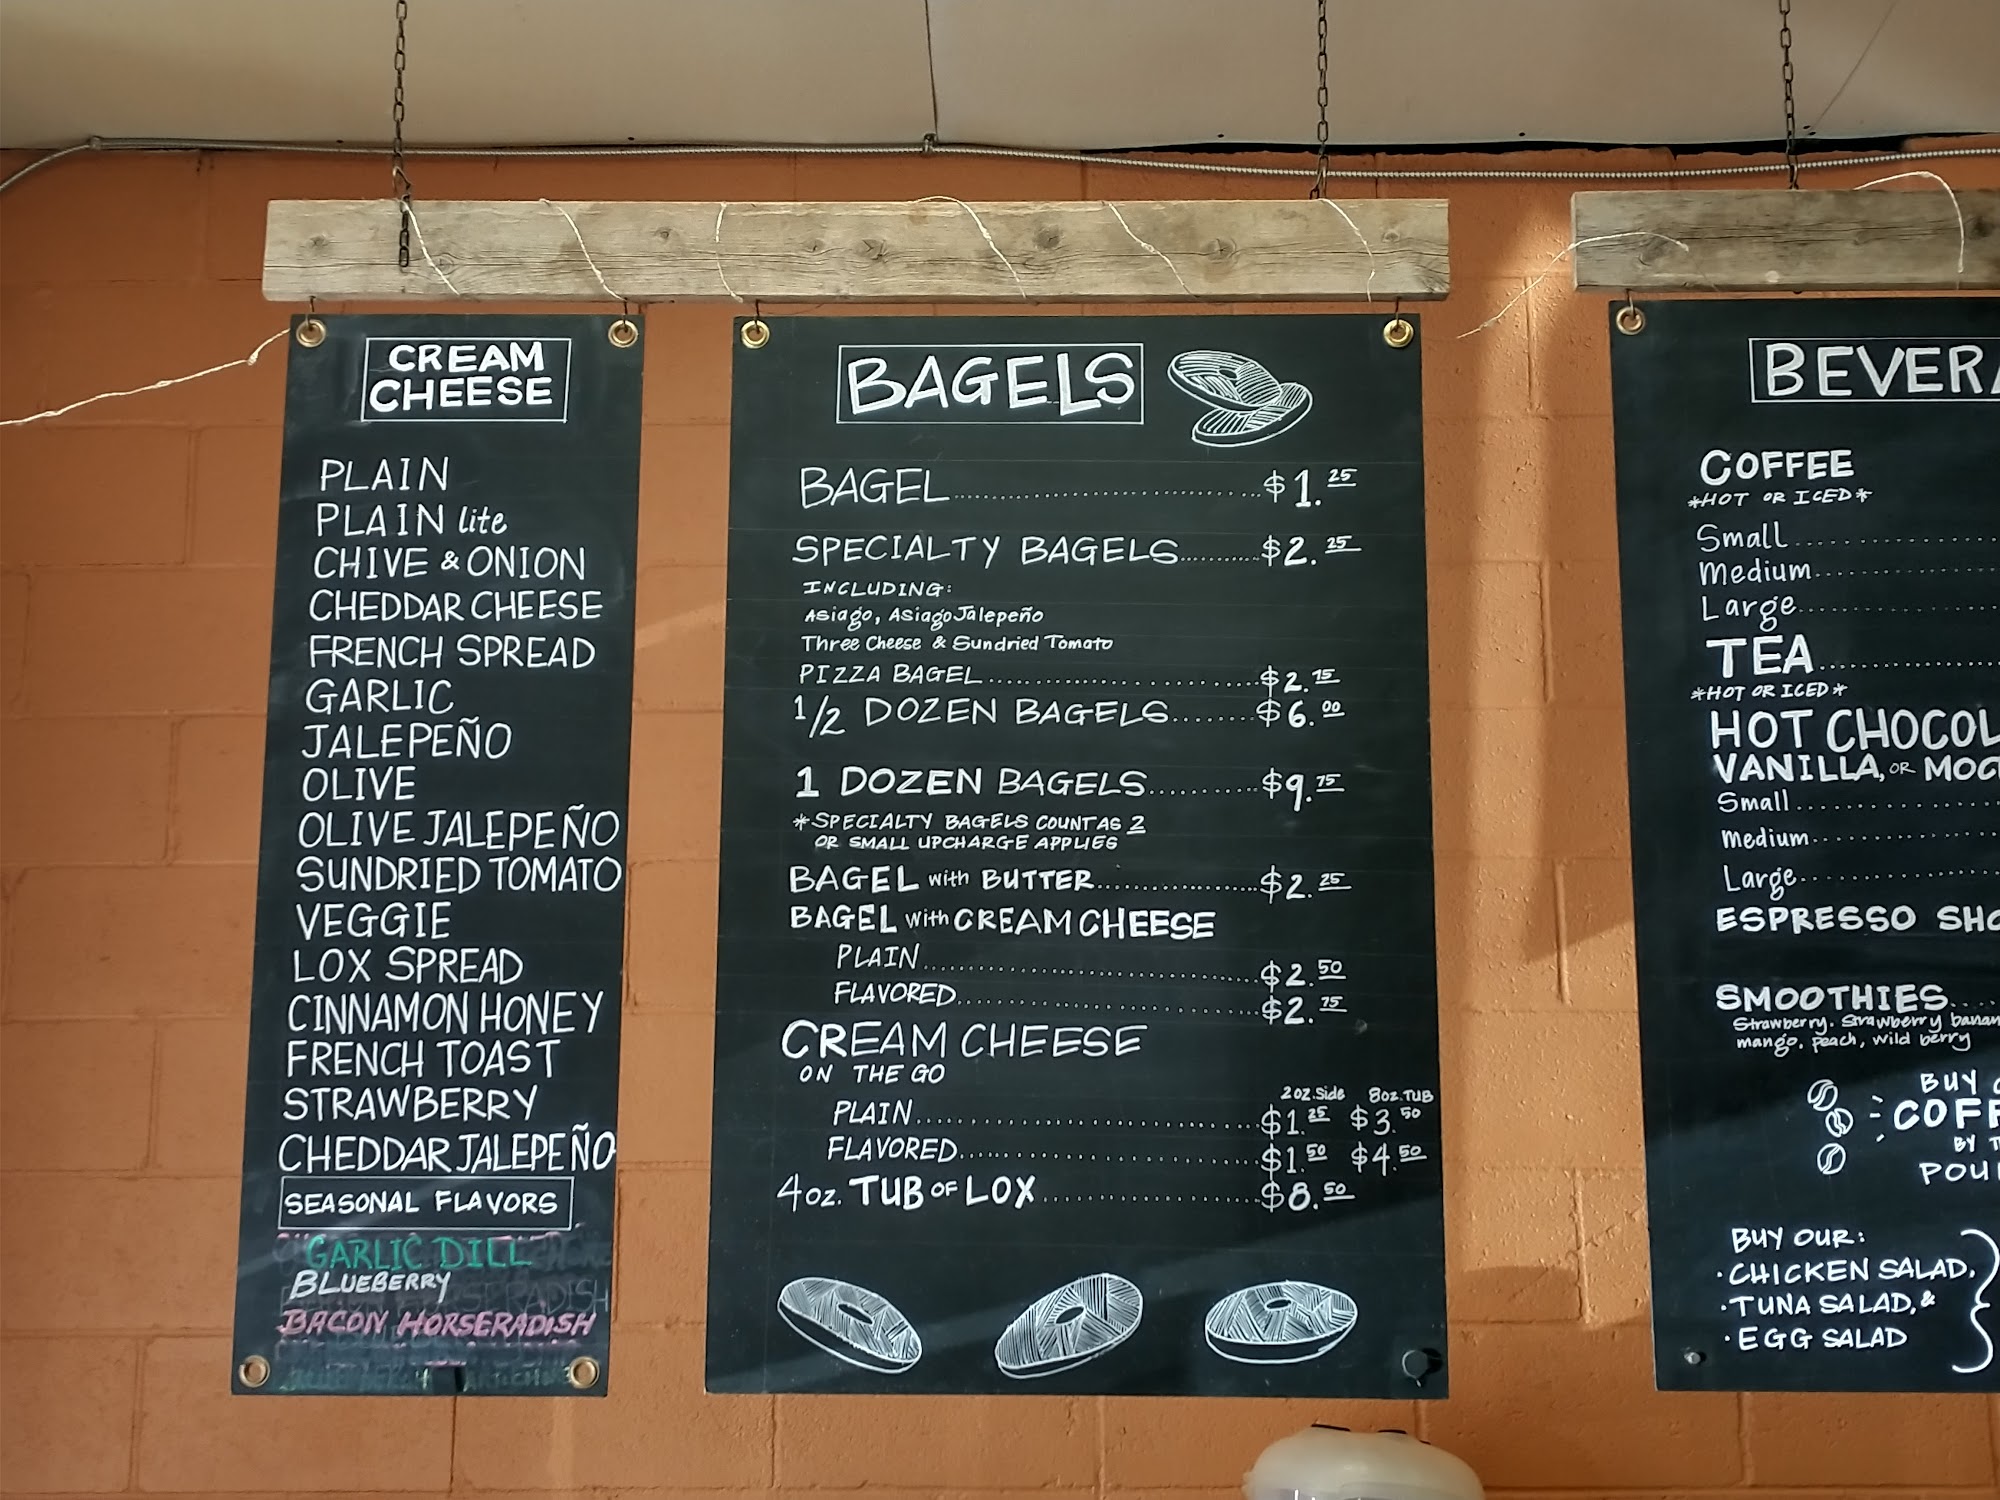 CREAM
CHEESE
PLAIN
PLAIN lite
CHIVE & ONION
CHEDDAR CHEESE
FRENCH SPREAD
GARLIC
JALEPEÑO
OLIVE
OLIVE JALEPEÑO
SUNDRIED TOMATO
VEGGIE
LOX SPREAD
CINNAMON HONEY
FRENCH TOAST
STRAWBERRY
CHEDDAR JALEPEÑO
SEASONAL FLAVORS
GARLIC DILL
BLUEBERRY
BACON HORSERADISH
BAGELS
BAGEL..........$1.25
SPECIALTY BAGELS..........$2.25
INCLUDING:
Asiago, Asiago Jalepeño
Three Cheese & Sundried Tomato
PIZZA BAGEL..........$2.75
1/2 DOZEN BAGELS..........$6.00
1 DOZEN BAGELS..........$9.75
*SPECIALTY BAGELS COUNT AS 2
OR SMALL UPCHARGE APPLIES
BAGEL with BUTTER..........$2.25
BAGEL with CREAM CHEESE
PLAIN..........$2.50
FLAVORED..........$2.75
CREAM CHEESE
ON THE GO
2oz.Side 8oz.TUB
PLAIN..........$1.25 $3.50
FLAVORED..........$1.50 $4.50
4oz. TUB OF LOX..........$8.50
COFFEE
*HOT OR ICED*
Small
Medium
Large
TEA
*HOT OR ICED*
HOT
VANILLA, OR
Small
Medium
Large
ESPRESSO
SMOOTHIES
Strawberry. Strawberry
mango, peach, wild berry
BUY
BY
BUY OUR:
·CHICKEN SALAD,
·TUNA SALAD, &
·EGG SALAD